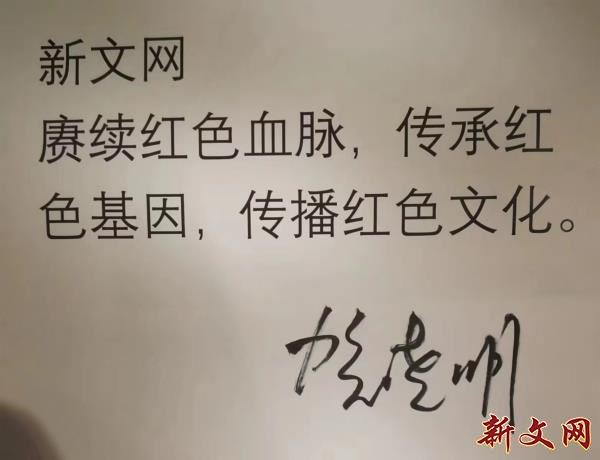 新文网
赓续红色血脉，传承红
色基因，传播红色文化。
新文网